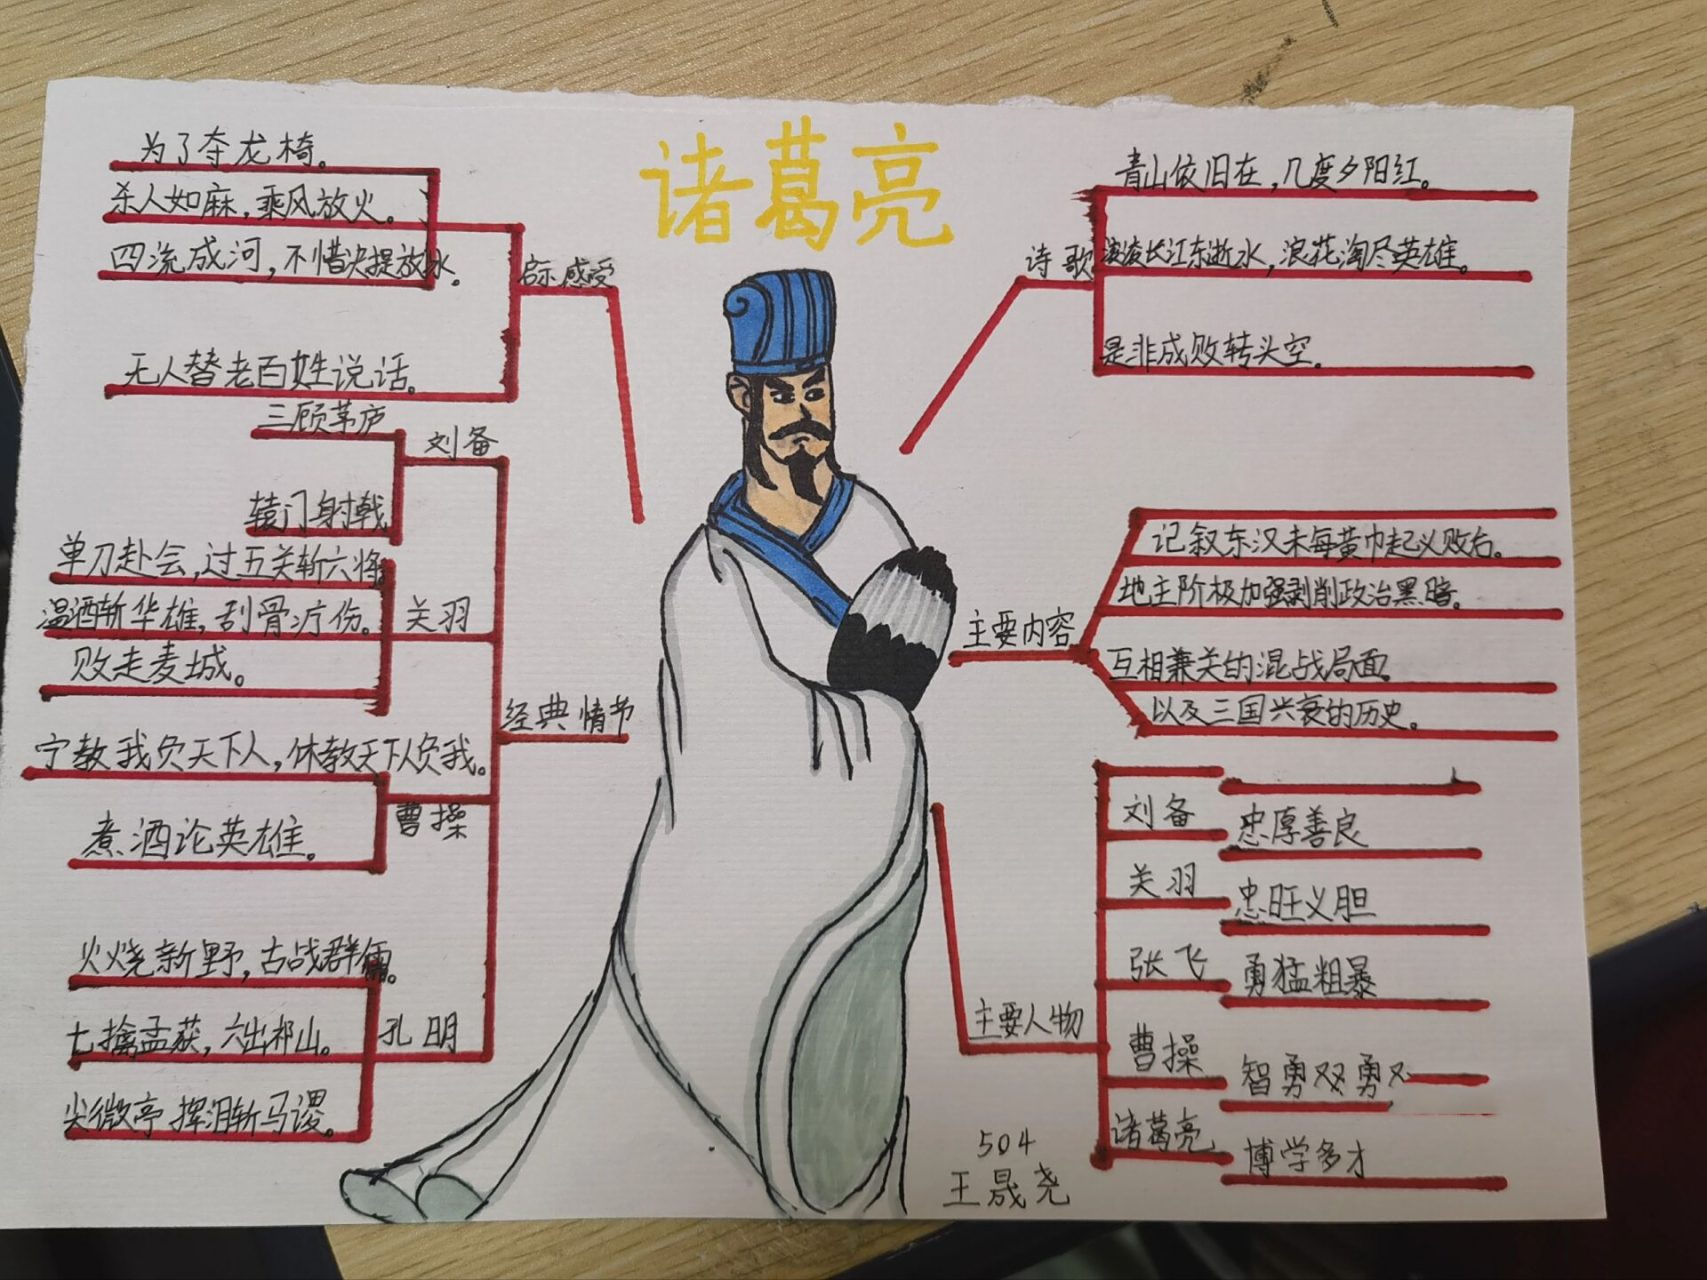 诸葛亮
为了夺龙椅。
杀人如麻,乘风放火。
四流成河,不惜决提放水。
启示感受
无人替老百姓说话。
三顾茅庐
刘备
辕门射戟
单刀赴会,过五关斩六将。
温酒斩华雄,刮骨疗伤。
关羽
败走麦城。
经典情节
宁教我负天下人,休教天下人负我。
曹操
煮酒论英雄。
火烧新野,古战群儒。
七擒孟获,六出祁山。
孔明
失微亭 挥泪斩马谡。
青山依旧在,几度夕阳红。
诗歌
滚滚长江东逝水,浪花淘尽英雄。
是非成败转头空。
记叙东汉末每黄巾起义败后。
地主阶极加强剥削政治黑暗。
主要内容
互相兼关的混战局面。
以及三国兴衰的历史。
刘备
忠厚善良
关羽
忠旺义胆
张飞
勇猛粗暴
主要人物
曹操
智勇双勇双
诸葛亮
博学多才
504
王晟尧